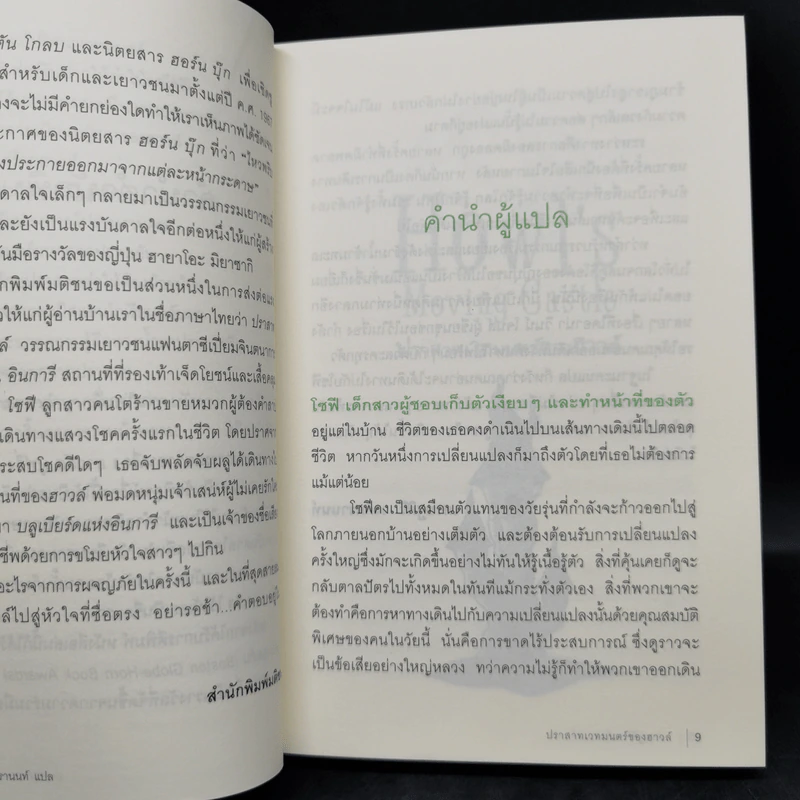 ตัน โกลบ และนิตยสาร ฮอร์น บุ๊ก เพื่อเชิดชู
สำหรับเด็กและเยาวชนมาตั้งแต่ปี ค.ศ.
งจะไม่มีคำยกย่องใดทำให้เราเห็นภาพได้ชัดเจน
ะกาศของนิตยสาร ฮอร์น บุ๊ก ที่ว่า "ไหวพริบ
งประกายออกมาจากแต่ละหน้ากระดาษ"
ดาลใจเล็กๆ กลายมาเป็นวรรณกรรมเยาวชน
และยังเป็นแรงบันดาลใจอีกต่อหนึ่งให้แก่ผู้สร้าง
ันมือรางวัลของญี่ปุ่น ฮายาโอะ มิยาซากิ
ักพิมพ์มติชนขอเป็นส่วนหนึ่งในการส่งต่อแรง
วให้แก่ผู้อ่านบ้านเราในชื่อภาษาไทยว่า ปราสาท
ล์ วรรณกรรมเยาวชนแฟนตาซีเปี่ยมจินตนาการ
น อินการี สถานที่ที่รองเท้าเจ็ดโยชน์และเสื้อคลุม
โซฟี ลูกสาวคนโตร้านขายหมวกผู้ต้องคำสาป
เดินทางแสวงโชคครั้งแรกในชีวิต โดยปราศจาก
ระสบโชคดีใดๆ เธอจับพลัดจับผลูได้เดินทาง
นที่ของฮาวล์ พ่อมดหนุ่มเจ้าเสน่ห์ผู้ไม่เคยรักใคร
า บลูเบียร์ดแห่งอินการี และเป็นเจ้าของชื่อเสีย
ชีพด้วยการขโมยหัวใจสาวๆ ไปกิน
อะไรจากการผจญภัยในครั้งนี้ และในที่สุดสาย
ล์ไปสู่หัวใจที่ซื่อตรง อย่ารอช้า...คำตอบอยู่
สำนักพิมพ์มติชน
รานนท์ แปล
คำนำผู้แปล
โซฟี เด็กสาวผู้ชอบเก็บตัวเงียบๆ และทำหน้าที่ของตัว
อยู่แต่ในบ้าน ชีวิตของเธอคงดำเนินไปบนเส้นทางเดิมนี้ไปตลอด
ชีวิต หากวันหนึ่งการเปลี่ยนแปลงก็มาถึงตัวโดยที่เธอไม่ต้องการ
แม้แต่น้อย
โซฟีคงเป็นเสมือนตัวแทนของวัยรุ่นที่กำลังจะก้าวออกไปสู่
โลกภายนอกบ้านอย่างเต็มตัว และต้องต้อนรับการเปลี่ยนแปลง
ครั้งใหญ่ซึ่งมักจะเกิดขึ้นอย่างไม่ทันให้รู้เนื้อรู้ตัว สิ่งที่คุ้นเคยก็ดูจะ
กลับตาลปัตรไปทั้งหมดในทันทีแม้กระทั่งตัวเอง สิ่งที่พวกเขาจะ
ต้องทำคือการหาทางเดินไปกับความเปลี่ยนแปลงนั้นด้วยคุณสมบัติ
พิเศษของคนในวัยนี้ นั่นคือการขาดไร้ประสบการณ์ ซึ่งดูราวจะ
เป็นข้อเสียอย่างใหญ่หลวง ทว่าความไม่รู้ก็ทำให้พวกเขาออกเดิน
ปราสาทเวทมนตร์ของฮาวล์ | 9